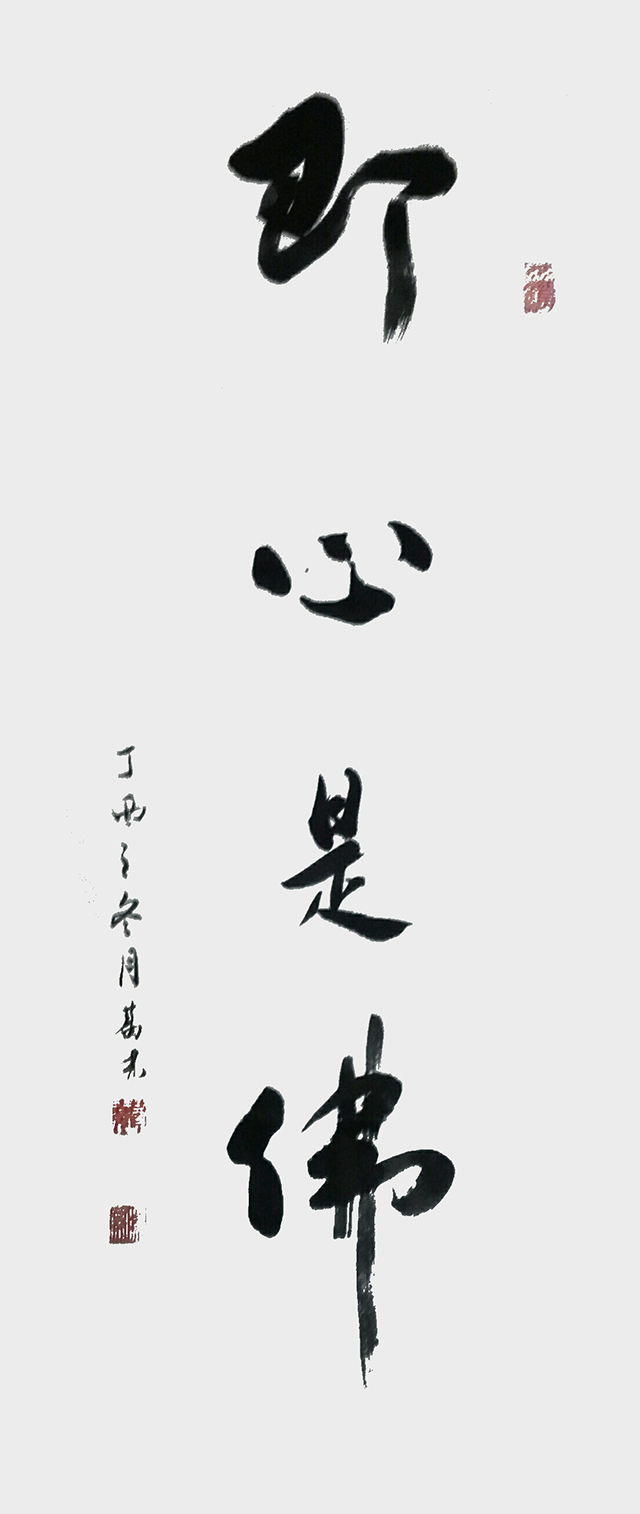 即心是佛
丁酉之冬月